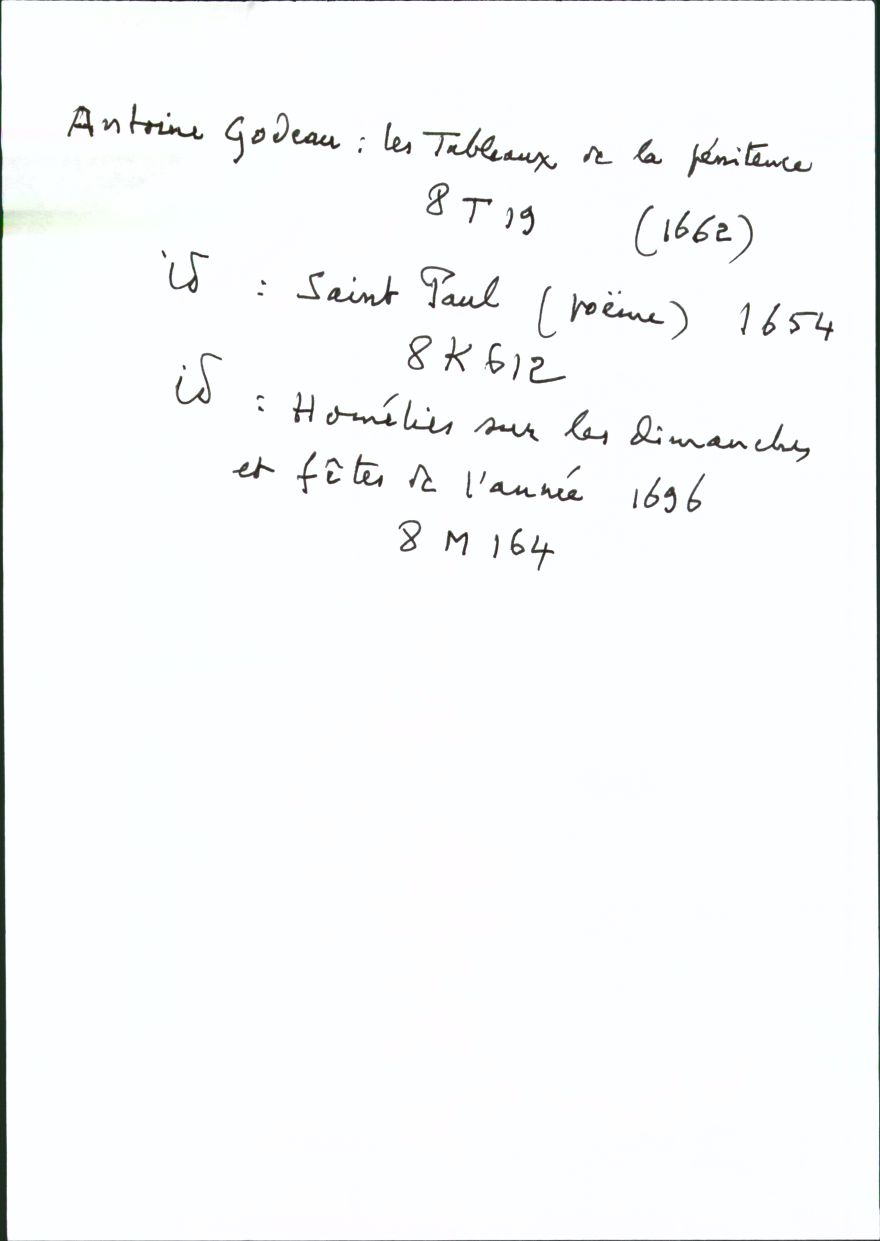 Antoine Godeau : les Tableaux de la pénitence
8 T 19 (1662)
id : Saint Paul (poëme) 1654
8 K 612
id : Homélies sur les dimanches
et fêtes de l'année 1696
8 M 164